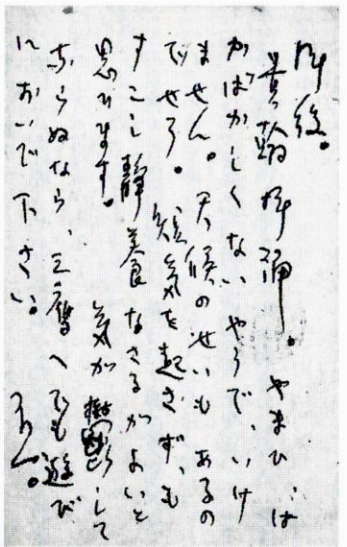 拝復。
貴翰拝誦。やまひ、は
かばかしくないやうで、いけ
ません。天候のせいもあるの
でせう。短気を起さず、も
すこし静養なさるがよいと
思ひます。気が して
ならぬなら、三鷹へでも遊び
においで下さい。不一。